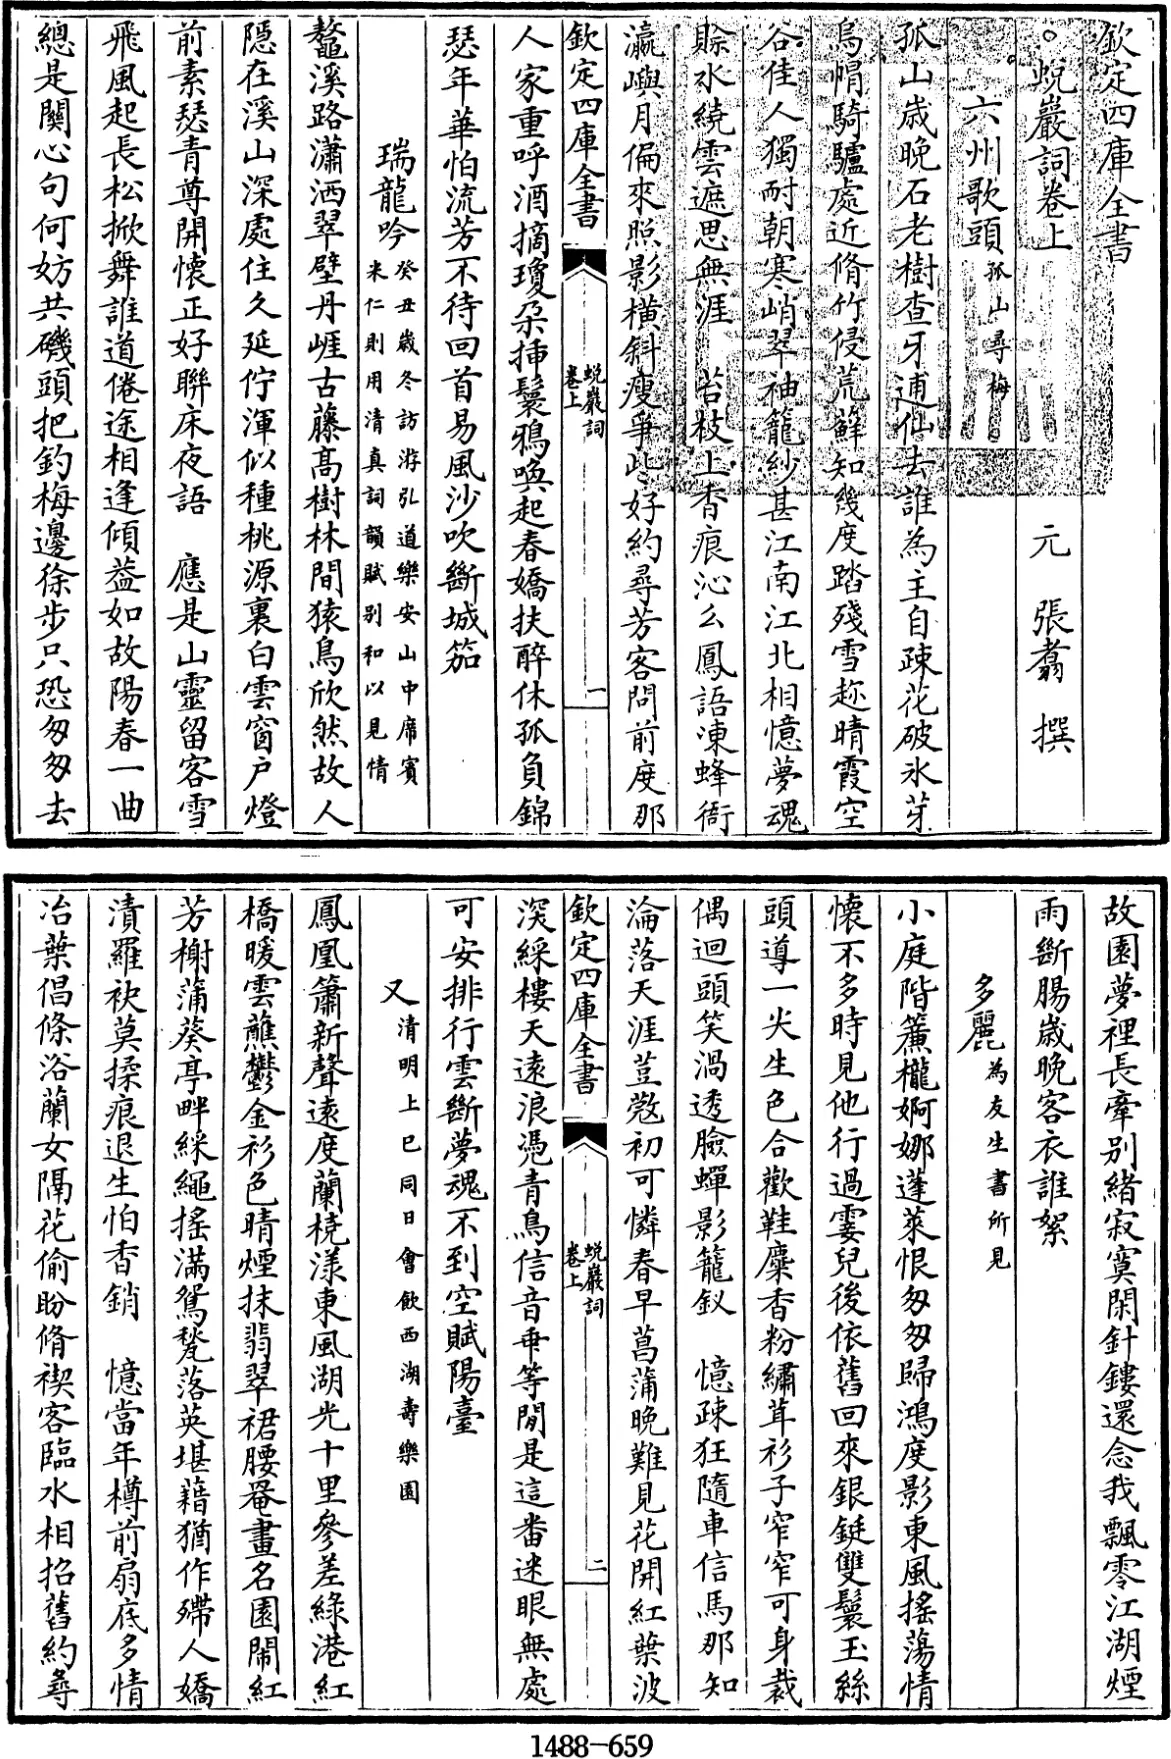 欽定四庫全書
蛻巖詞卷上
元 張翥 撰
六州歌頭孤山尋梅
孤山歲晚石老樹查牙逋仙去誰為主自疎花破氷芽
烏帽騎驢處近脩竹侵荒蘚知幾度踏殘雪趂晴霞空
谷佳人獨耐朝寒峭翠袖籠紗甚江南江北相憶夢魂
賒水繞雲遮思無涯 苔枝上香痕沁么鳳語凍蜂衙
瀛嶼月偏來照影橫斜瘦爭些好約尋芳客問前度那
人家重呼酒摘瓊朶挿鬟鴉喚起春嬌扶醉休孤負錦
欽定四庫全書
蛻巖詞
卷上
一
瑟年華怕流芳不待回首易風沙吹斷城笳
瑞龍吟癸丑歲冬訪游弘道樂安山中席賓
米仁則用清真詞韻賦别和以見情
鼇溪路瀟洒翠壁丹崕古藤髙樹林間猿鳥欣然故人
隠在溪山深處住久延佇渾似種桃源裏白雲窗户燈
前素瑟青尊開懷正好聨床夜語 應是山靈留客雪
飛風起長松掀舞誰道倦途相逢傾葢如故陽春一曲
總是闗心句何妨共磯頭把釣梅邊徐步只恐匆匆去
故園夢裡長牽别緒寂寞閑針鏤還念我飄零江湖煙
雨斷腸歲晚客衣誰絮
多麗為友生書所見
小庭階簾櫳婀娜蓬萊恨匆匆歸鴻度影東風摇蕩情
懷不多時見他行過霎兒後依舊回來銀鋌雙鬟玉絲
頭導一尖生色合歡鞋麋香粉繡茸衫子窄窄可身裁
偶迴頭笑渦透臉蟬影籠釵 憶疎狂隨車信馬那知
淪落天涯荳蔲初可憐春早菖蒲晚難見花開紅葉波
深綵樓天遠浪凴青鳥信音乖等閒是這畨迷眼無處
欽定四庫全書
蛻巖詞
卷上
二
可安排行雲斷夢魂不到空賦陽臺
又清明上巳同日會飲西湖壽樂園
鳳凰簫新聲遠度蘭橈漾東風湖光十里參差緑港紅
橋暖雲蘸鬱金衫色晴煙抹翡翠裙腰罨畫名園閙紅
芳榭蒲葵亭畔綵繩摇滿鴛甃落英堪藉猶作殢人嬌
漬羅袂莫揉痕退生怕香銷 憶當年樽前扇底多情
冶葉倡條浴蘭女隔花偷盼脩禊客臨水相招舊約尋
1488-659